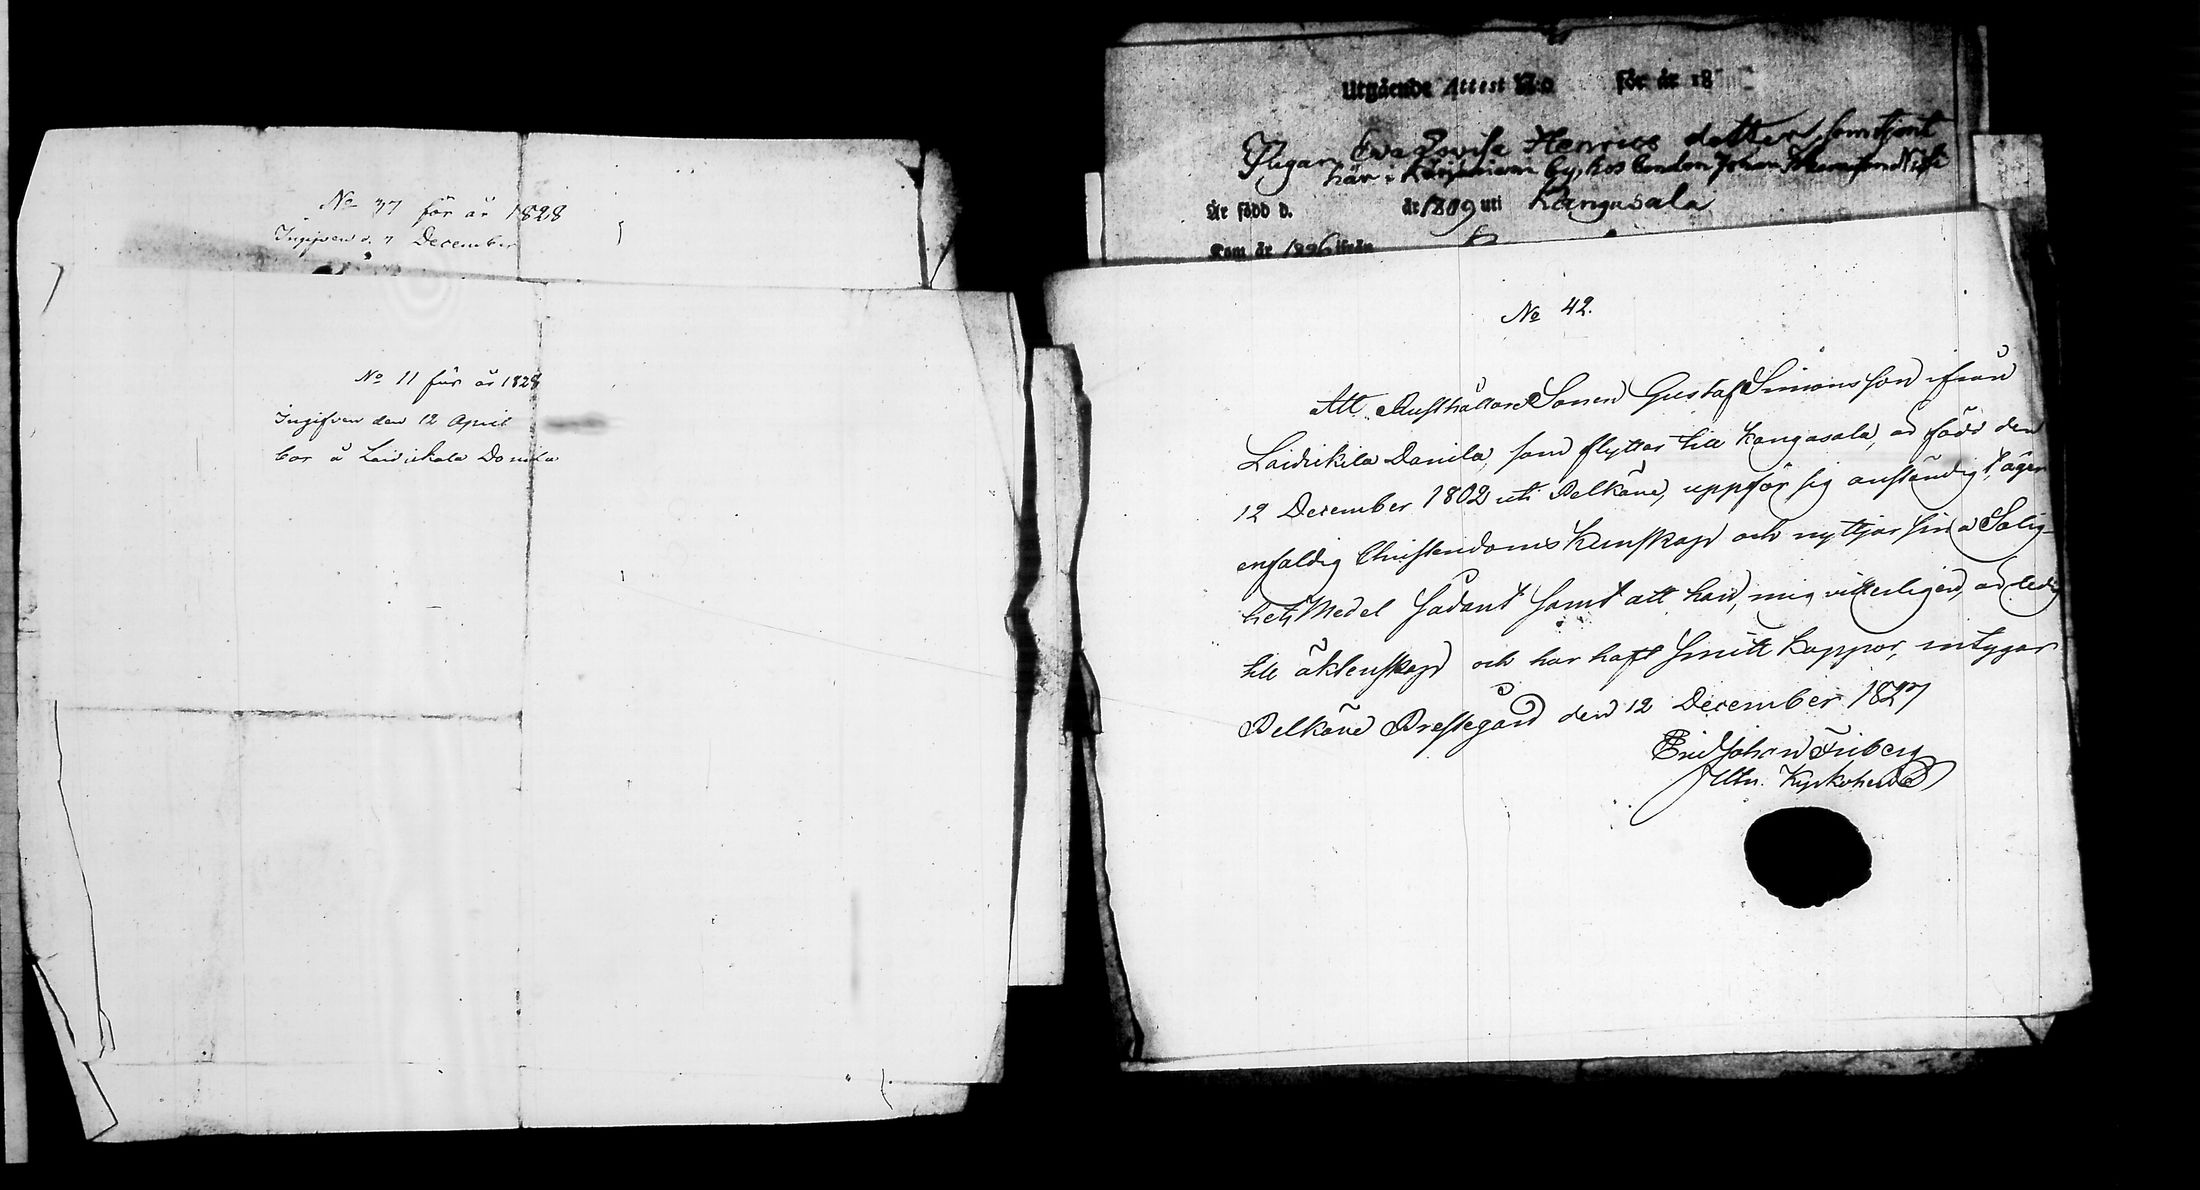 No 37 för år 1828
Ingifven d. 7 December
No 11 för år 1828
Ingifven den 12 April
bor å Laidikala Donila
Utgående Attest N:o för år 18
Pigan Eva Lovisa Henrics dotter som tjent
här i by, hos bonden Johan
Är född d. år 1809 uti Kangasala
Kom år 1826 ifrån
No 42.
Att Rusthållare Sonen Gustaf Simonsson ifrån
Laidikila Danila, som flyttar till Kangasala, är född den
12 December 1802 uti Pelkäne, uppför sig anständigt, äger
enfaldig Christendoms Kunskap och nyttjar sina Salig-
hets Medel sådant samt att han, mig vitterligen, är ledig
till äktenskap och har haft Smitt Koppor, intygar
Pelkäne Prestegård den 12 December 1827
Eric Johan Friberg
Kyrkoherde